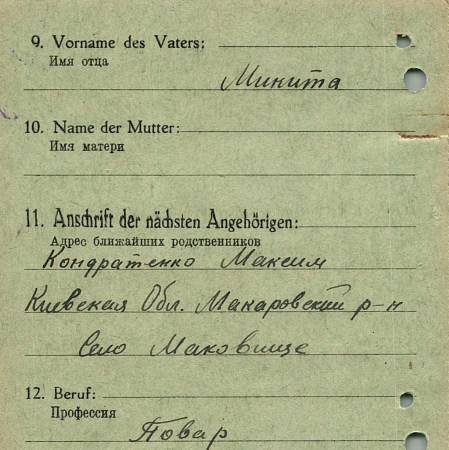 9. Vorname des Vaters:
Имя отца
Микита
10. Name der Mutter:
Имя матери
11. Anschrift der nächsten Angehörigen:
Адрес ближайших родственников
Кондратенко Максим
Киевская Обл. Макаровский р-н
Село Маковище
12. Beruf:
Профессия
Повар